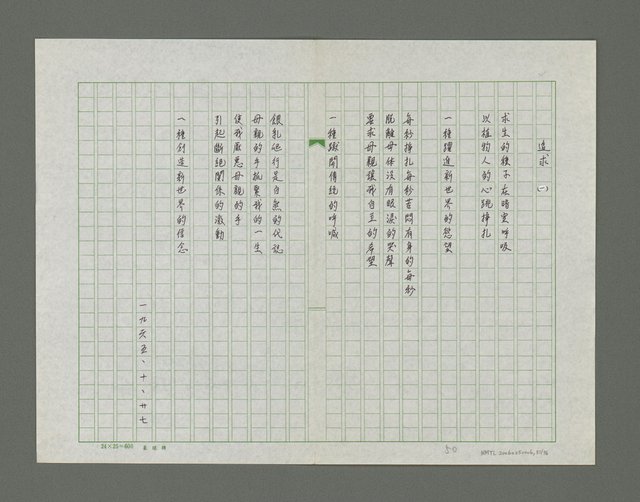 追求 (一)
求生的種子在暗室呼吸
以植物人的心跳掙扎
一種躍進新世界的慾望
每秒掙扎每秒苦悶有身的每秒
脫離母体沒有眼淚的哭聲
要求母親讓我自立的希望
一種撕開傳統的呼喊
餵乳的行是自然的代誌
母親的手抓緊我的一生
使我厭惡母親的手
引起斷絕關係的激動
一種創造新世界的信念
一九六五、十、廿七
24×25=600
50